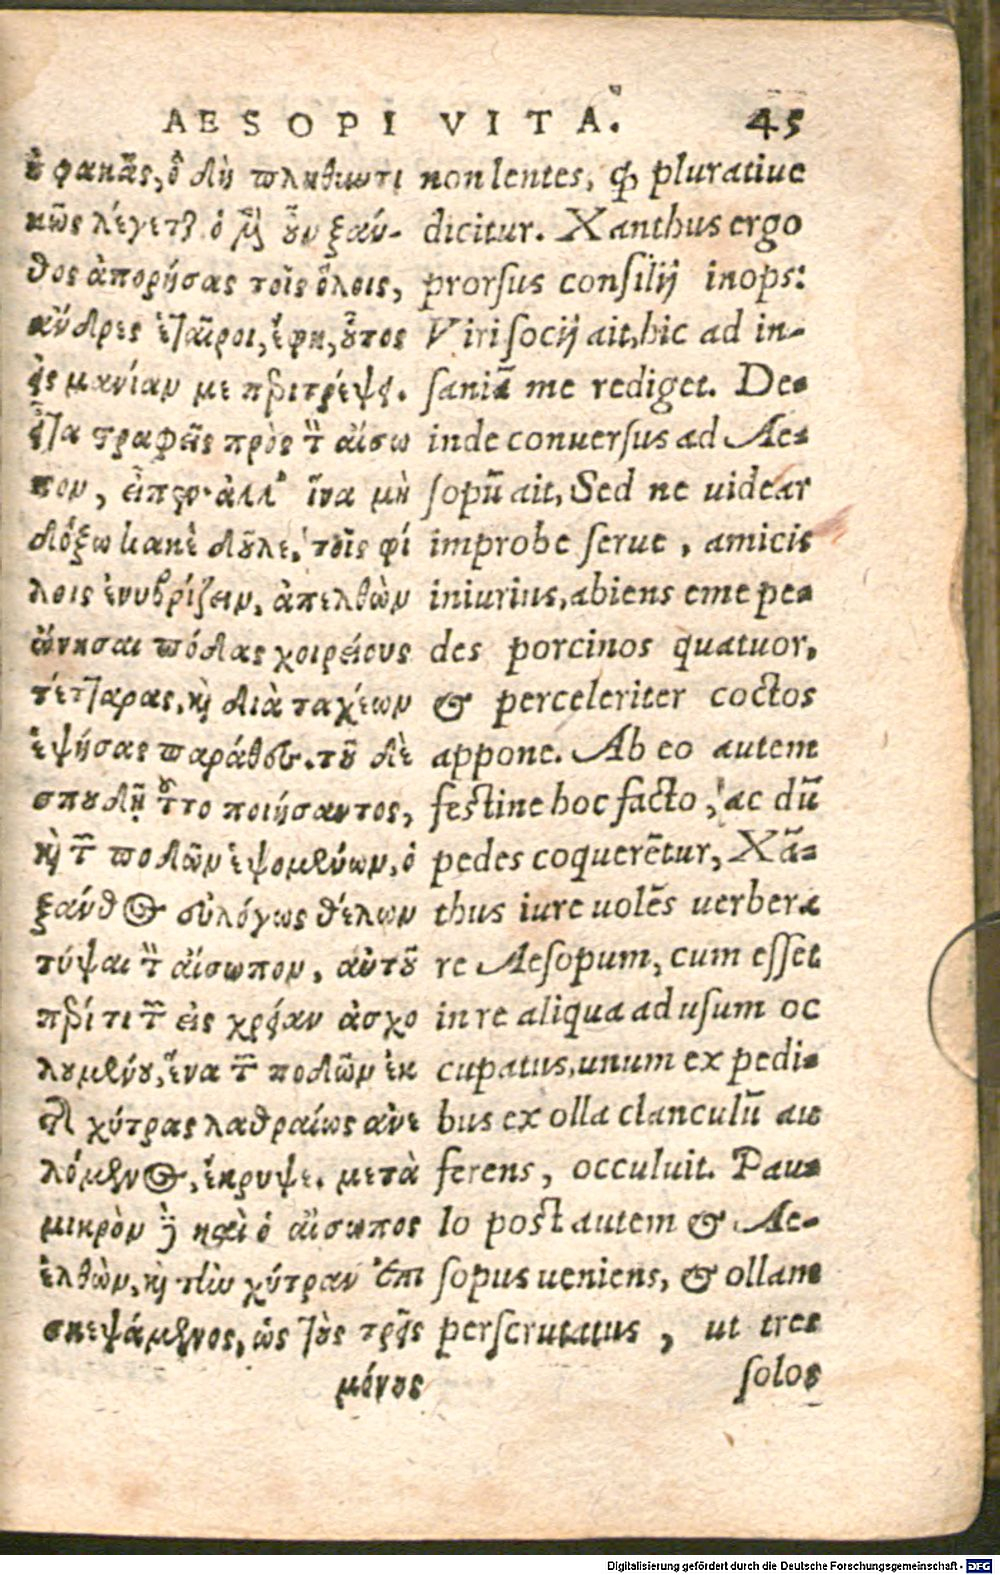 AESOPI VITA. 45
ὐ φακᾶς, ὃ δὴ πληθυντι
κῶς λέγεται. ὁ μὲν οὖν ξάν-
θος ἀπορήσας τοῖς ὅλοις,
ἄνδρες ἑταῖροι, ἔφη, οὗτος
εἰς μανίαν με περιτρέψει.
εἶτα στραφεὶς πρὸς τὸν αἴσω
πον, εἶπεν· ἀλλ' ἵνα μὴ
δόξω κακὲ δοῦλε, τοῖς φί
λοις ἐνυβρίζειν, ἀπελθὼν
ὤνησαι πόδας χοιρείους
τέτταρας, καὶ διὰ ταχέων
ἑψήσας παράθες. τοῦ δὲ
σπουδῇ τοῦτο ποιήσαντος,
καὶ τῶν ποδῶν ἑψομένων, ὁ
ξάνθος εὐλόγως θέλων
τύψαι τὸν αἴσωπον, αὐτοῦ
περί τι τῶν εἰς χρείαν ἀσχο
λουμένου, ἕνα τῶν ποδῶν ἐκ
τῆς χύτρας λαθραίως ἀνε
λόμενος, ἔκρυψε. μετὰ
μικρὸν δὲ καὶ ὁ αἴσωπος
ἐλθὼν, καὶ τὴν χύτραν ἐπι
σκεψάμενος, ὡς τοὺς τρεῖς
μόνους
non lentes, qđ pluratiue
dicitur. Xanthus ergo
prorſus conſilij inops:
Viri ſocij ait, hic ad in-
ſaniã me rediget. De-
inde conuerſus ad Ae-
ſopũ ait, Sed ne uidear
improbe ſerue, amicis
iniurius, abiens eme pe-
des porcinos quatuor,
& perceleriter coctos
appone. Ab eo autem
feſtine hoc facto, ac dũ
pedes coquerẽtur, Xã-
thus iure uolẽs uerbera
re Aeſopum, cum eſſet
in re aliqua ad uſum oc
cupatus, unum ex pedi-
bus ex olla clanculũ au
ferens, occuluit. Pau-
lo poſt autem & Ae-
ſopus ueniens, & ollam
perſcrutatus, ut tres
ſolos
Digitalisierung gefördert durch die Deutsche Forschungsgemeinschaft - DFG